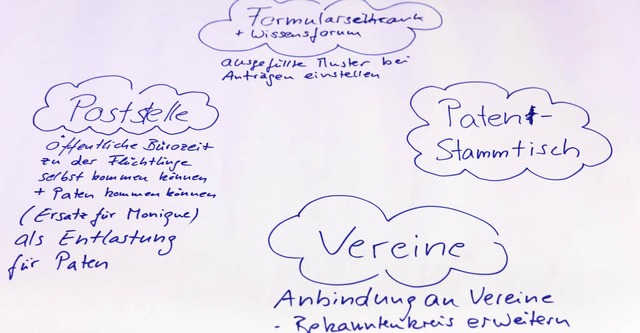 Formularschrank
+ Wissensforum
ausgefüllte Muster bei
Anträgen einstellen
Poststelle
öffentliche Bürozeit
zu der Flüchtlinge
selbst kommen können
+ Paten kommen können
(Ersatz für Monique)
als Entlastung
für Paten
Paten-
Stammtisch
Vereine
Anbindung an Vereine
- Bekanntenkreis erweitern